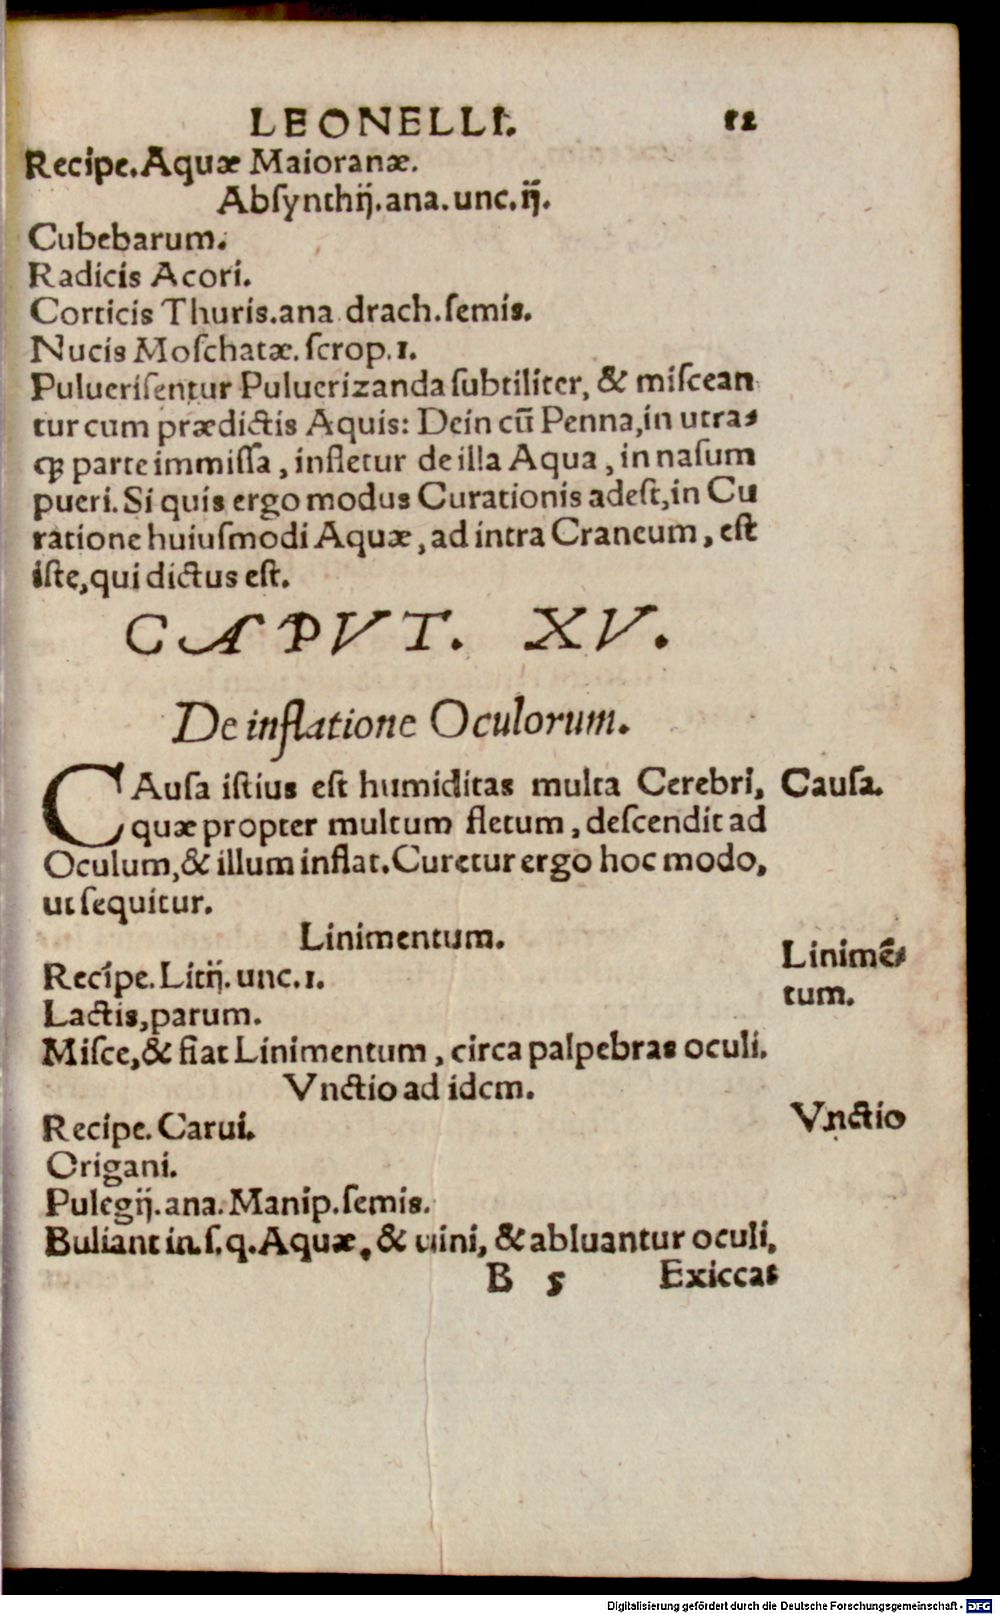 LEONELLI. 12
Recipe. Aquæ Maioranæ.
Absynthij. ana. unc. ij.
Cubebarum.
Radicis Acori.
Corticis Thuris. ana drach. ſemis.
Nucis Moſchatæ. ſcrop. 1.
Pulueriſentur Puluerizanda ſubtiliter, & miſcean
tur cum prædictis Aquis: Dein cū Penna, in utra⸗
q̃ parte immiſſa, infletur de illa Aqua, in naſum
pueri. Si quis ergo modus Curationis adeſt, in Cu
ratione huiuſmodi Aquæ, ad intra Craneum, eſt
iſte, qui dictus eſt.
CAPVT. XV.
De inflatione Oculorum.
CAuſa iſtius eſt humiditas multa Cerebri, Cauſa.
quæ propter multum fletum, deſcendit ad
Oculum, & illum inflat. Curetur ergo hoc modo,
ut ſequitur.
Linimentum.
Linimē⸗
tum.
Recipe. Litij. unc. 1.
Lactis, parum.
Miſce, & fiat Linimentum, circa palpebras oculi.
Vnctio ad idem.
Vnctio
Recipe. Carui.
Origani.
Pulegij. ana. Manip. ſemis.
Buliant in. ſ. q. Aquæ, & uini, & abluantur oculi,
B 5 Exicca⸗
Digitalisierung gefördert durch die Deutsche Forschungsgemeinschaft - DFG